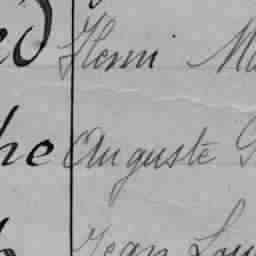 Henri
he Auguste
Jean Lou